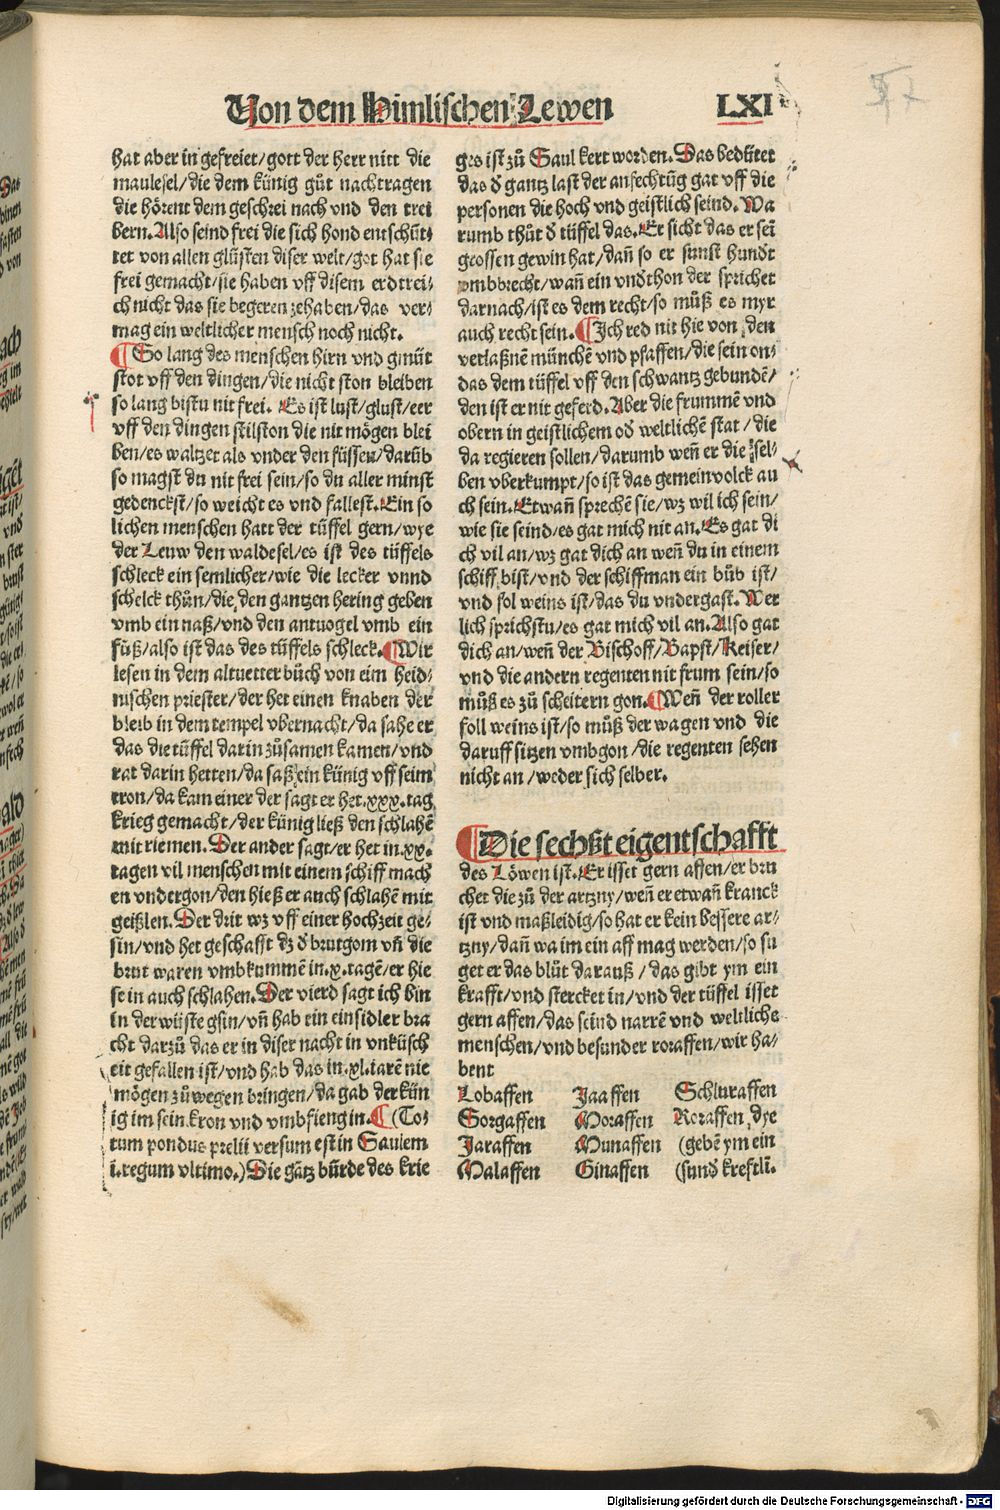 Von dem Himlischen Lewen
LXI
hat aber in gefreiet/gott der herr nitt die
maulesel/die dem künig gůt nachtragen
die hörent dem geschrei nach vnd den trei
bern. Also seind frei die sich hond entschüt-
tet von allen glüsten diser welt/got hat sie
frei gemacht/sie haben vff disem erdtrei-
ch nicht das sie begeren zehaben/das ver-
mag ein weltlicher mensch noch nicht.
¶ So lang des menschen hirn vnd gmüt
stot vff den dingen/die nicht ston bleiben
so lang bistu nit frei. Es ist lust/glust/eer
vff den dingen stilston die nit mögen blei
ben/es waltzet als vnder den füssen/darūb
so magst du nit frei sein/so du aller minst
gedenckst/so weicht es vnd fallest. Ein so
lichen menschen hatt der tüffel gern/wye
der Leuw den waldesel/es ist des tüffels
schleck ein semlicher/wie die lecker vnnd
schelck thůn/die den gantzen hering geben
vmb ein naß/vnd den antuogel vmb ein
füß/also ist das des tüffels schleck. ¶ Wir
lesen in dem altuetter bůch von eim heid-
nischen priester/der het einen knaben der
bleib in dem tempel vbernacht/da sahe er
das die tüffel darin zůsamen kamen/vnd
rat darin hetten/da saß ein künig vff seim
tron/da kam einer der sagt er het .xxx. tag
krieg gemacht/der künig ließ den schlahē
mit riemen. Der ander sagt/er het in .xx.
tagen vil menschen mit einem schiff mach
en vndergon/den hieß er auch schlahē mit
geißlen. Der drit wz vff einer hochzeit ge-
sin/vnd het geschafft dz d̄ brutgom vn̄ die
brut waren vmbkummē in .x. tagē/er hie
se in auch schlahen. Der vierd sagt ich bin
in der wüste gsin/vn̄ hab ein einsidler bra
cht darzů das er in diser nacht in vnküsch
eit gefallen ist/vnd hab das in .xl. iarē nie
mögen zů wegen bringen/da gab der kün
ig im sein kron vnd vmbfieng in. ¶ (To-
tum pondus prelii versum est in Saulem
i. regum vltimo.) Die gātz bürde des krie
ges ist zů Saul kert worden. Das bedütet
das d̄ gantz last der anfechtūg gat vff die
personen die hoch vnd geistlich seind. Wa
rumb thůt d̄ tüffel das. Er sicht das er sei
grossen gewin hat/dan̄ so er sunst hundt
vmbbrecht/wan̄ ein vndthon der sprichet
darnach/ist es dem recht/so můß es myr
auch recht sein. ¶ Ich red nit hie von den
verlaßnē münchē vnd pfaffen/die sein on-
das dem tüffel vff den schwantz gebundē/
den ist er nit geferd. Aber die frummē vnd
obern in geistlichem od̄ weltlichē stat/die
da regieren sollen/darumb wen̄ er die sel-
ben vberkumpt/so ist das gemein volck au
ch sein. Etwan̄ sprechē sie/wz wil ich sein/
wie sie seind/es gat mich nit an. Es gat di
ch vil an/wz gat dich an wen̄ du in einem
schiff bist/vnd der schiffman ein bůb ist/
vnd fol weins ist/das du vndergast. Wer
lich sprichstu/es gat mich vil an. Also gat
dich an/wen̄ der Bischoff/Bapst/Keiser/
vnd die andern regenten nit frum sein/so
můß es zů scheitern gon. ¶ Wen̄ der roller
foll weins ist/so můß der wagen vnd die
daruff sitzen vmbgon/die regenten sehen
nicht an/weder sich selber.
¶ Die sechßt eigentschafft
des Löwen ist. Er isset gern affen/er bru
chet die zů der artzny/wen̄ er etwan̄ kranck
ist vnd maßleidig/so hat er kein bessere ar-
tzny/dan̄ wa im ein aff mag werden/so su
get er das blůt darauß/das gibt ym ein
krafft/vnd stercket in/vnd der tüffel isset
gern affen/das seind narrē vnd weltliche
menschen/vnd besunder roraffen/wir ha-
bent
Lobaffen Jaaffen Schluraffen
Sorgaffen Moraffen Roraffen dye
Jaraffen Munaffen (gebē ym ein
Malaffen Ginaffen (sund̄ kreftlī.
Digitalisierung gefördert durch die Deutsche Forschungsgemeinschaft - DFG